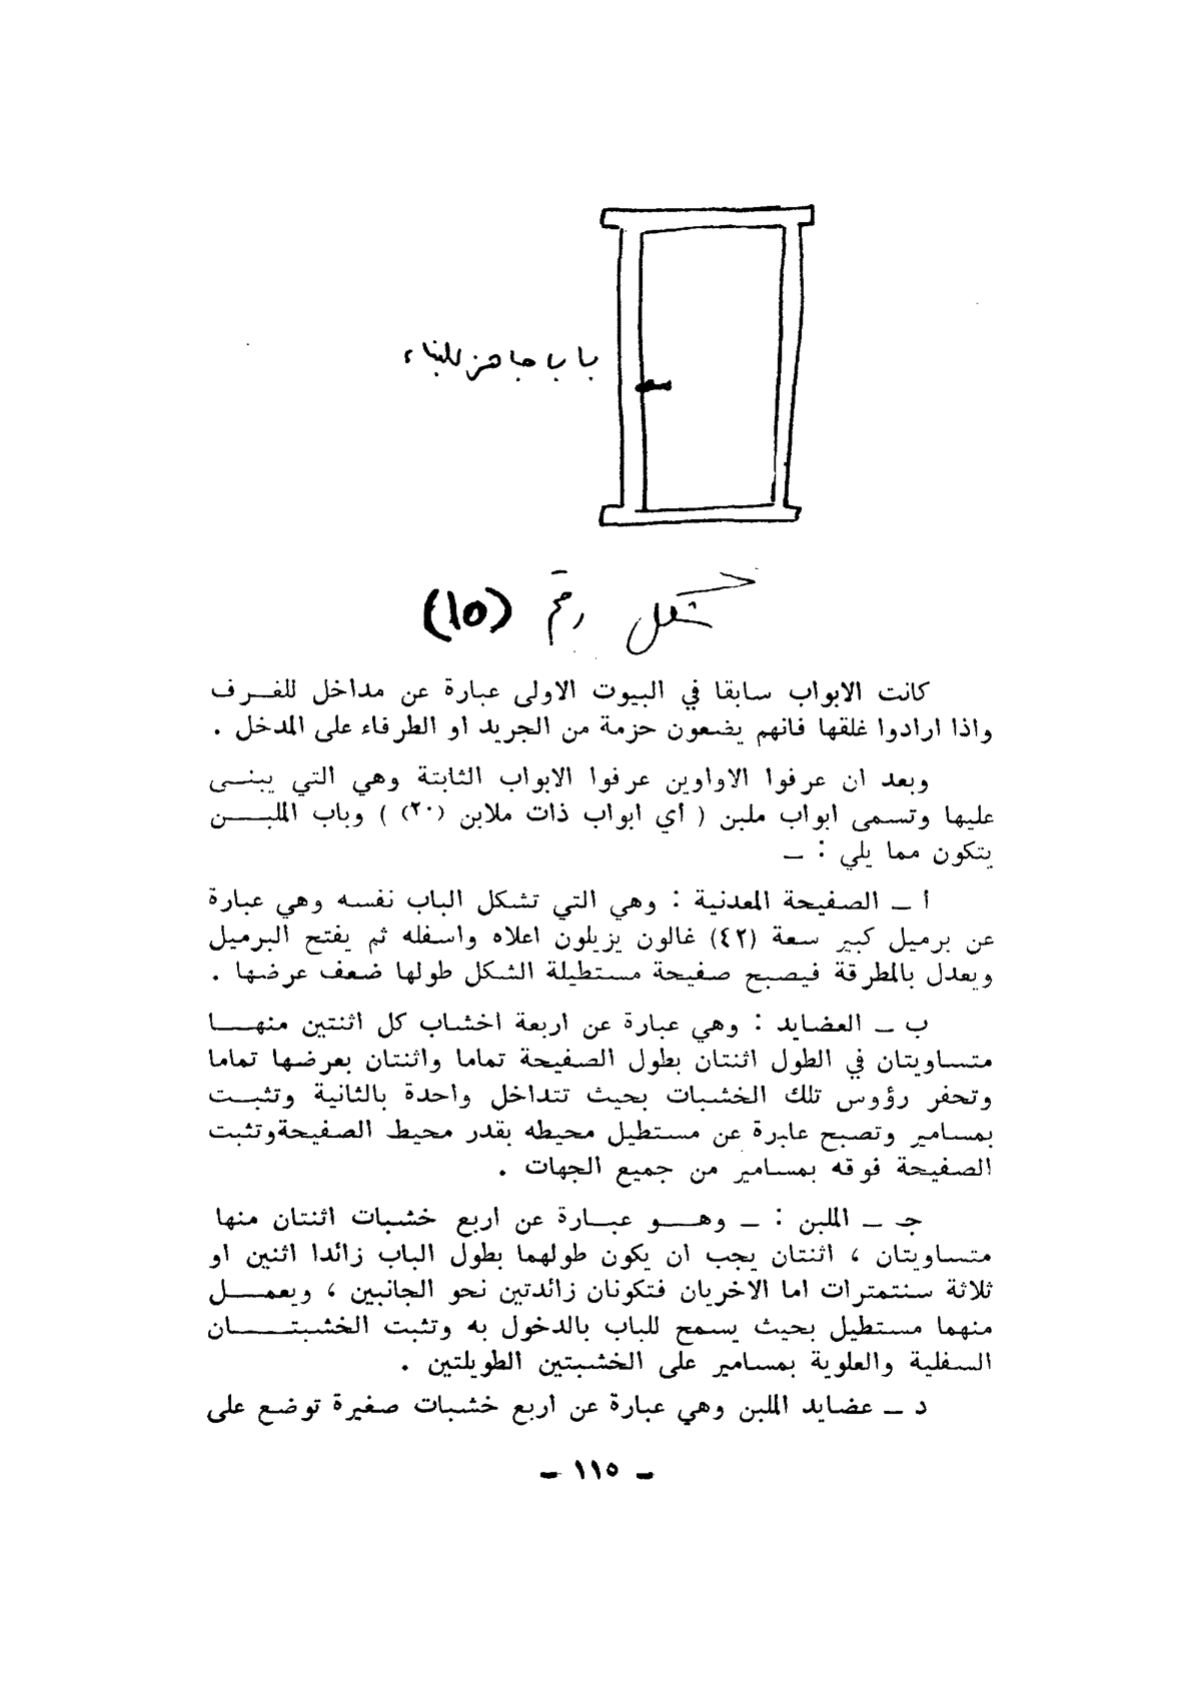 باب جاهز للبناء
شكل رقم (١٥)
كانت الابواب سابقا في البيوت الاولى عبارة عن مداخل للغــرف
واذا ارادوا غلقها فانهم يضعون حزمة من الجريد او الطرفاء على المدخل .
وبعد ان عرفوا الاواوين عرفوا الابواب الثابتة وهي التي يبنــى
عليها وتسمى ابواب ملبن ( أي ابواب ذات ملابن (٢٠) ) وباب الملبـــن
يتكون مما يلي : ــ
أ ــ الصفيحة المعدنية : وهي التي تشكل الباب نفسه وهي عبارة
عن برميل كبير سعة (٤٢) غالون يزيلون اعلاه واسفله ثم يفتح البرميل
ويعدل بالمطرقة فيصبح صفيحة مستطيلة الشكل طولها ضعف عرضها .
ب ــ العضايد : وهي عبارة عن اربعة اخشاب كل اثنتين منهــا
متساويتان في الطول اثنتان بطول الصفيحة تماما واثنتان بعرضها تماما
وتحفر رؤوس تلك الخشبات بحيث تتداخل واحدة بالثانية وتثبــت
بمسامير وتصبح عابرة عن مستطيل محيطه بقدر محيط الصفيحةوتثبت
الصفيحة فوقه بمسامير من جميع الجهات .
جـ ــ الملبن : ــ وهــو عبــارة عن اربع خشبات اثنتان منها
متساويتان ، اثنتان يجب ان يكون طولهما بطول الباب زائدا اثنين او
ثلاثة سنتمترات اما الاخريان فتكونان زائدتين نحو الجانبين ، ويعمـــل
منهما مستطيل بحيث يسمح للباب بالدخول به وتثبت الخشبتـــان
السفلية والعلوية بمسامير على الخشبتين الطويلتين .
د ــ عضايد الملبن وهي عبارة عن اربع خشبات صغيرة توضع على
ــ ١١٥ ــ